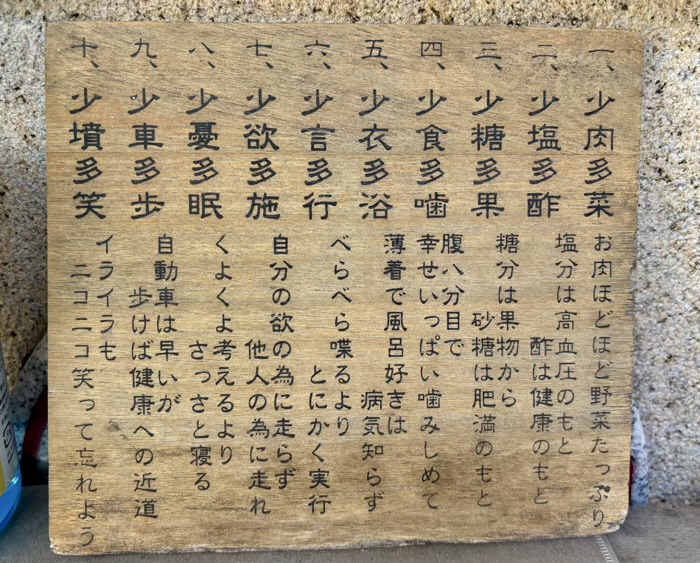 一、少肉多菜
お肉ほどほど野菜たっぷり
二、少塩多酢
塩分は高血圧のもと
酢は健康のもと
三、少糖多果
糖分は果物から
砂糖は肥満のもと
四、少食多噛
腹八分目で
幸せいっぱい噛みしめて
五、少衣多浴
薄着で風呂好きは
病気知らず
六、少言多行
べらべら喋るより
とにかく実行
七、少欲多施
自分の欲の為に走らず
他人の為に走れ
八、少憂多眠
くよくよ考えるより
さっさと寝る
九、少車多歩
自動車は早いが
歩けば健康への近道
十、少墳多笑
イライラも
ニコニコ笑って忘れよう